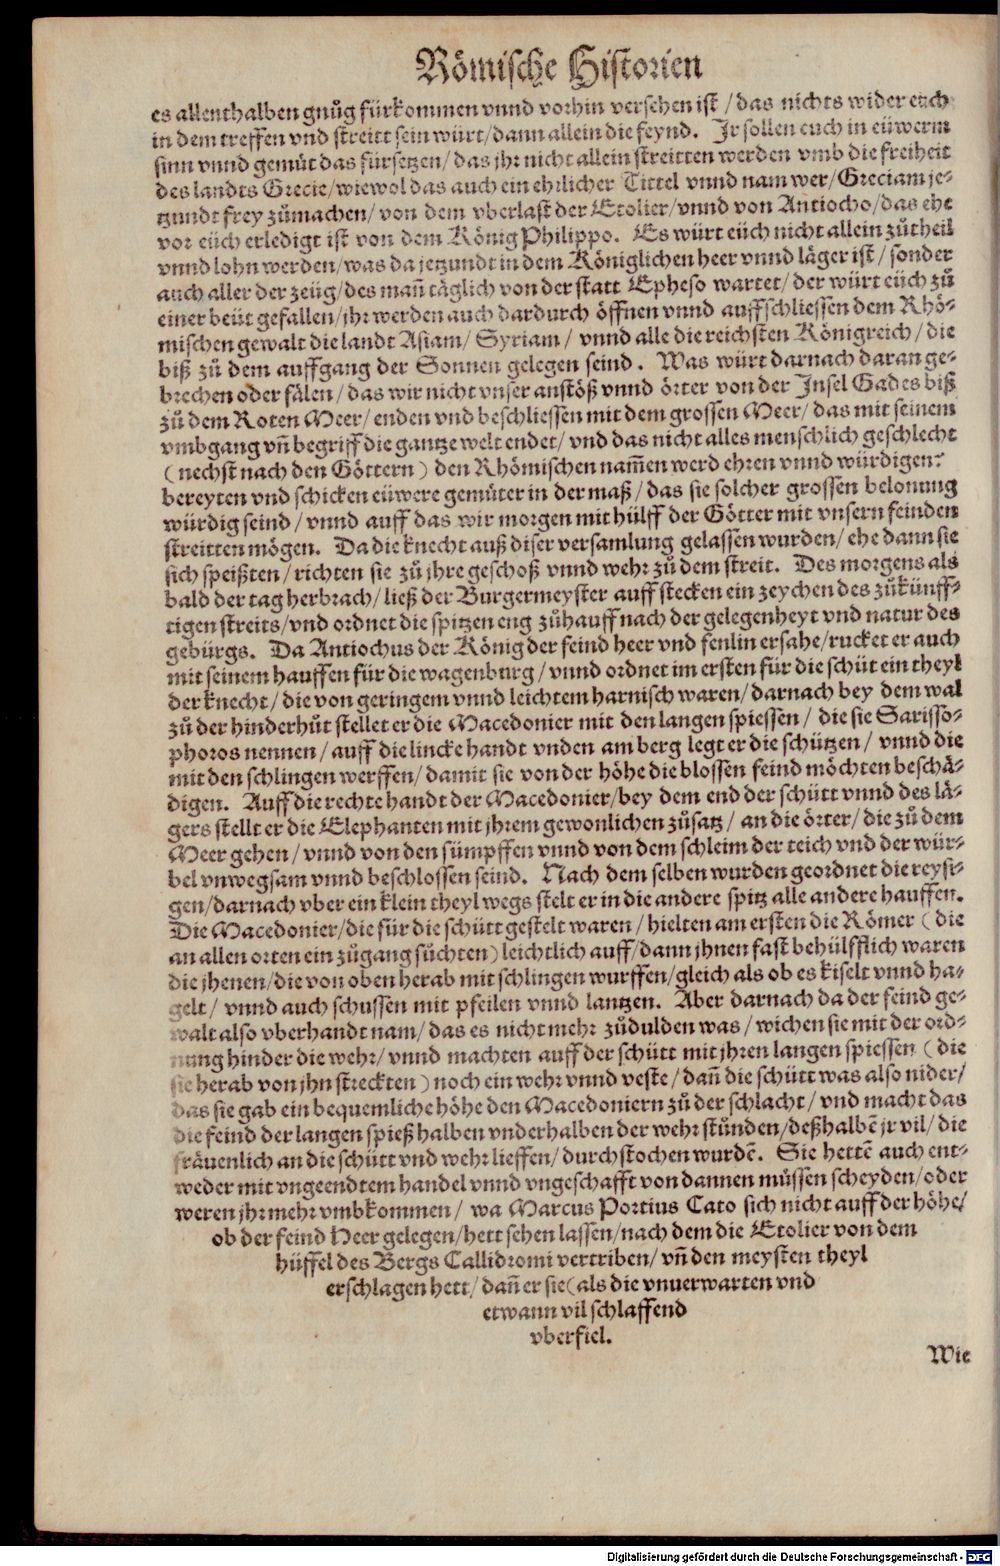 Römische Historien
es allenthalben gnůg fürkommen vnnd vorhin versehen ist / das nichts wider euch
in dem treffen vnd streitt sein würt/dann allein die feynd. Jr sollen euch in eüwerm
sinn vnnd gemüt das fürsetzen/das jhr nicht allein streitten werden vmb die freiheit
des landts Grecie/wiewol das auch ein ehrlicher Tittel vnnd nam wer/Greciam je-
tzundt frey zůmachen/von dem vberlast der Etolier/vnnd von Antiocho/das ehe
vor eüch erledigt ist von dem König Philippo. Es würt eüch nicht allein zůtheil
vnnd lohn werden/was da jetzundt in dem Königlichen heer vnnd läger ist/ sonder
auch aller der zeüg/des mañ täglich von der statt Epheso wartet/der würt eüch zů
einer beüt gefallen/jhr werden auch dardurch öffnen vnnd auffschliessen dem Rhö-
mischen gewalt die landt Asiam/ Syriam/ vnnd alle die reichsten Königreich/die
biß zů dem auffgang der Sonnen gelegen seind. Was würt darnach daran ge-
brechen oder fälen/das wir nicht vnser anstöß vnnd örter von der Jnsel Gades biß
zů dem Roten Meer/enden vnd beschliessen mit dem grossen Meer/das mit seinem
vmbgang vñ begriff die gantze welt endet/vnd das nicht alles menschlich geschlecht
(nechst nach den Göttern) den Rhömischen nam̃en werd ehren vnnd würdigen?
bereyten vnd schicken eüwere gemüter in der maß/das sie solcher grossen belonung
würdig seind/vnnd auff das wir morgen mit hülff der Götter mit vnsern feinden
streitten mögen. Da die knecht auß diser versamlung gelassen wurden/ehe dann sie
sich speißten/richten sie zů jhre geschoß vnnd wehr zů dem streit. Des morgens als
bald der tag herbrach/ließ der Burgermeyster auff stecken ein zeychen des zůkünff-
tigen streits/vnd ordnet die spitzen eng zůhauff nach der gelegenheyt vnd natur des
gebürgs. Da Antiochus der König der feind heer vnd fenlin ersahe/rucket er auch
mit seinem hauffen für die wagenburg/vnnd ordnet im ersten für die schüt ein theyl
der knecht/die von geringem vnnd leichtem harnisch waren/darnach bey dem wal
zů der hinderhůt stellet er die Macedonier mit den langen spiessen/ die sie Sarisso-
phoros nennen/auff die lincke handt vnden am berg legt er die schützen/ vnnd die
mit den schlingen werffen/damit sie von der höhe die blossen feind möchten beschä-
digen. Auff die rechte handt der Macedonier/bey dem end der schütt vnnd des lä-
gers stellt er die Elephanten mit jhrem gewonlichen zůsatz/an die örter/die zů dem
Meer gehen/vnnd von den sümpffen vnnd von dem schleim der teich vnd der wür-
bel vnwegsam vnnd beschlossen seind. Nach dem selben wurden geordnet die reysi-
gen/darnach vber ein klein theyl wegs stelt er in die andere spitz alle andere hauffen.
Die Macedonier/die für die schütt gestelt waren/hielten am ersten die Römer (die
an allen orten ein zůgang sůchten) leichtlich auff/dann jhnen fast behülfflich waren
die jhenen/die von oben herab mit schlingen wurffen/gleich als ob es kiselt vnnd ha-
gelt/ vnnd auch schussen mit pfeilen vnnd lantzen. Aber darnach da der feind ge-
walt also vberhandt nam/das es nicht mehr zůdulden was/wichen sie mit der ord-
nung hinder die wehr/vnnd machten auff der schütt mit jhren langen spiessen (die
sie herab von jhn streckten) noch ein wehr vnnd veste/dañ die schütt was also nider/
das sie gab ein bequemliche höhe den Macedoniern zů der schlacht/vnd macht das
die feind der langen spieß halben vnderhalben der wehr stůnden/deßhalbẽ jr vil/die
fräuenlich an die schütt vnd wehr lieffen/durchstochen wurdẽ. Sie hettẽ auch ent-
weder mit vngeendtem handel vnnd vngeschafft von dannen müssen scheyden/oder
weren jhr mehr vmbkommen/ wa Marcus Portius Cato sich nicht auff der höhe/
ob der feind Heer gelegen/hett sehen lassen/nach dem die Etolier von dem
hüffel des Bergs Callidromi vertriben/vñ den meysten theyl
erschlagen hett/dañ er sie (als die vnuerwarten vnd
etwann vil schlaffend
vberfiel.
Wie
Digitalisierung gefördert durch die Deutsche Forschungsgemeinschaft - DFG